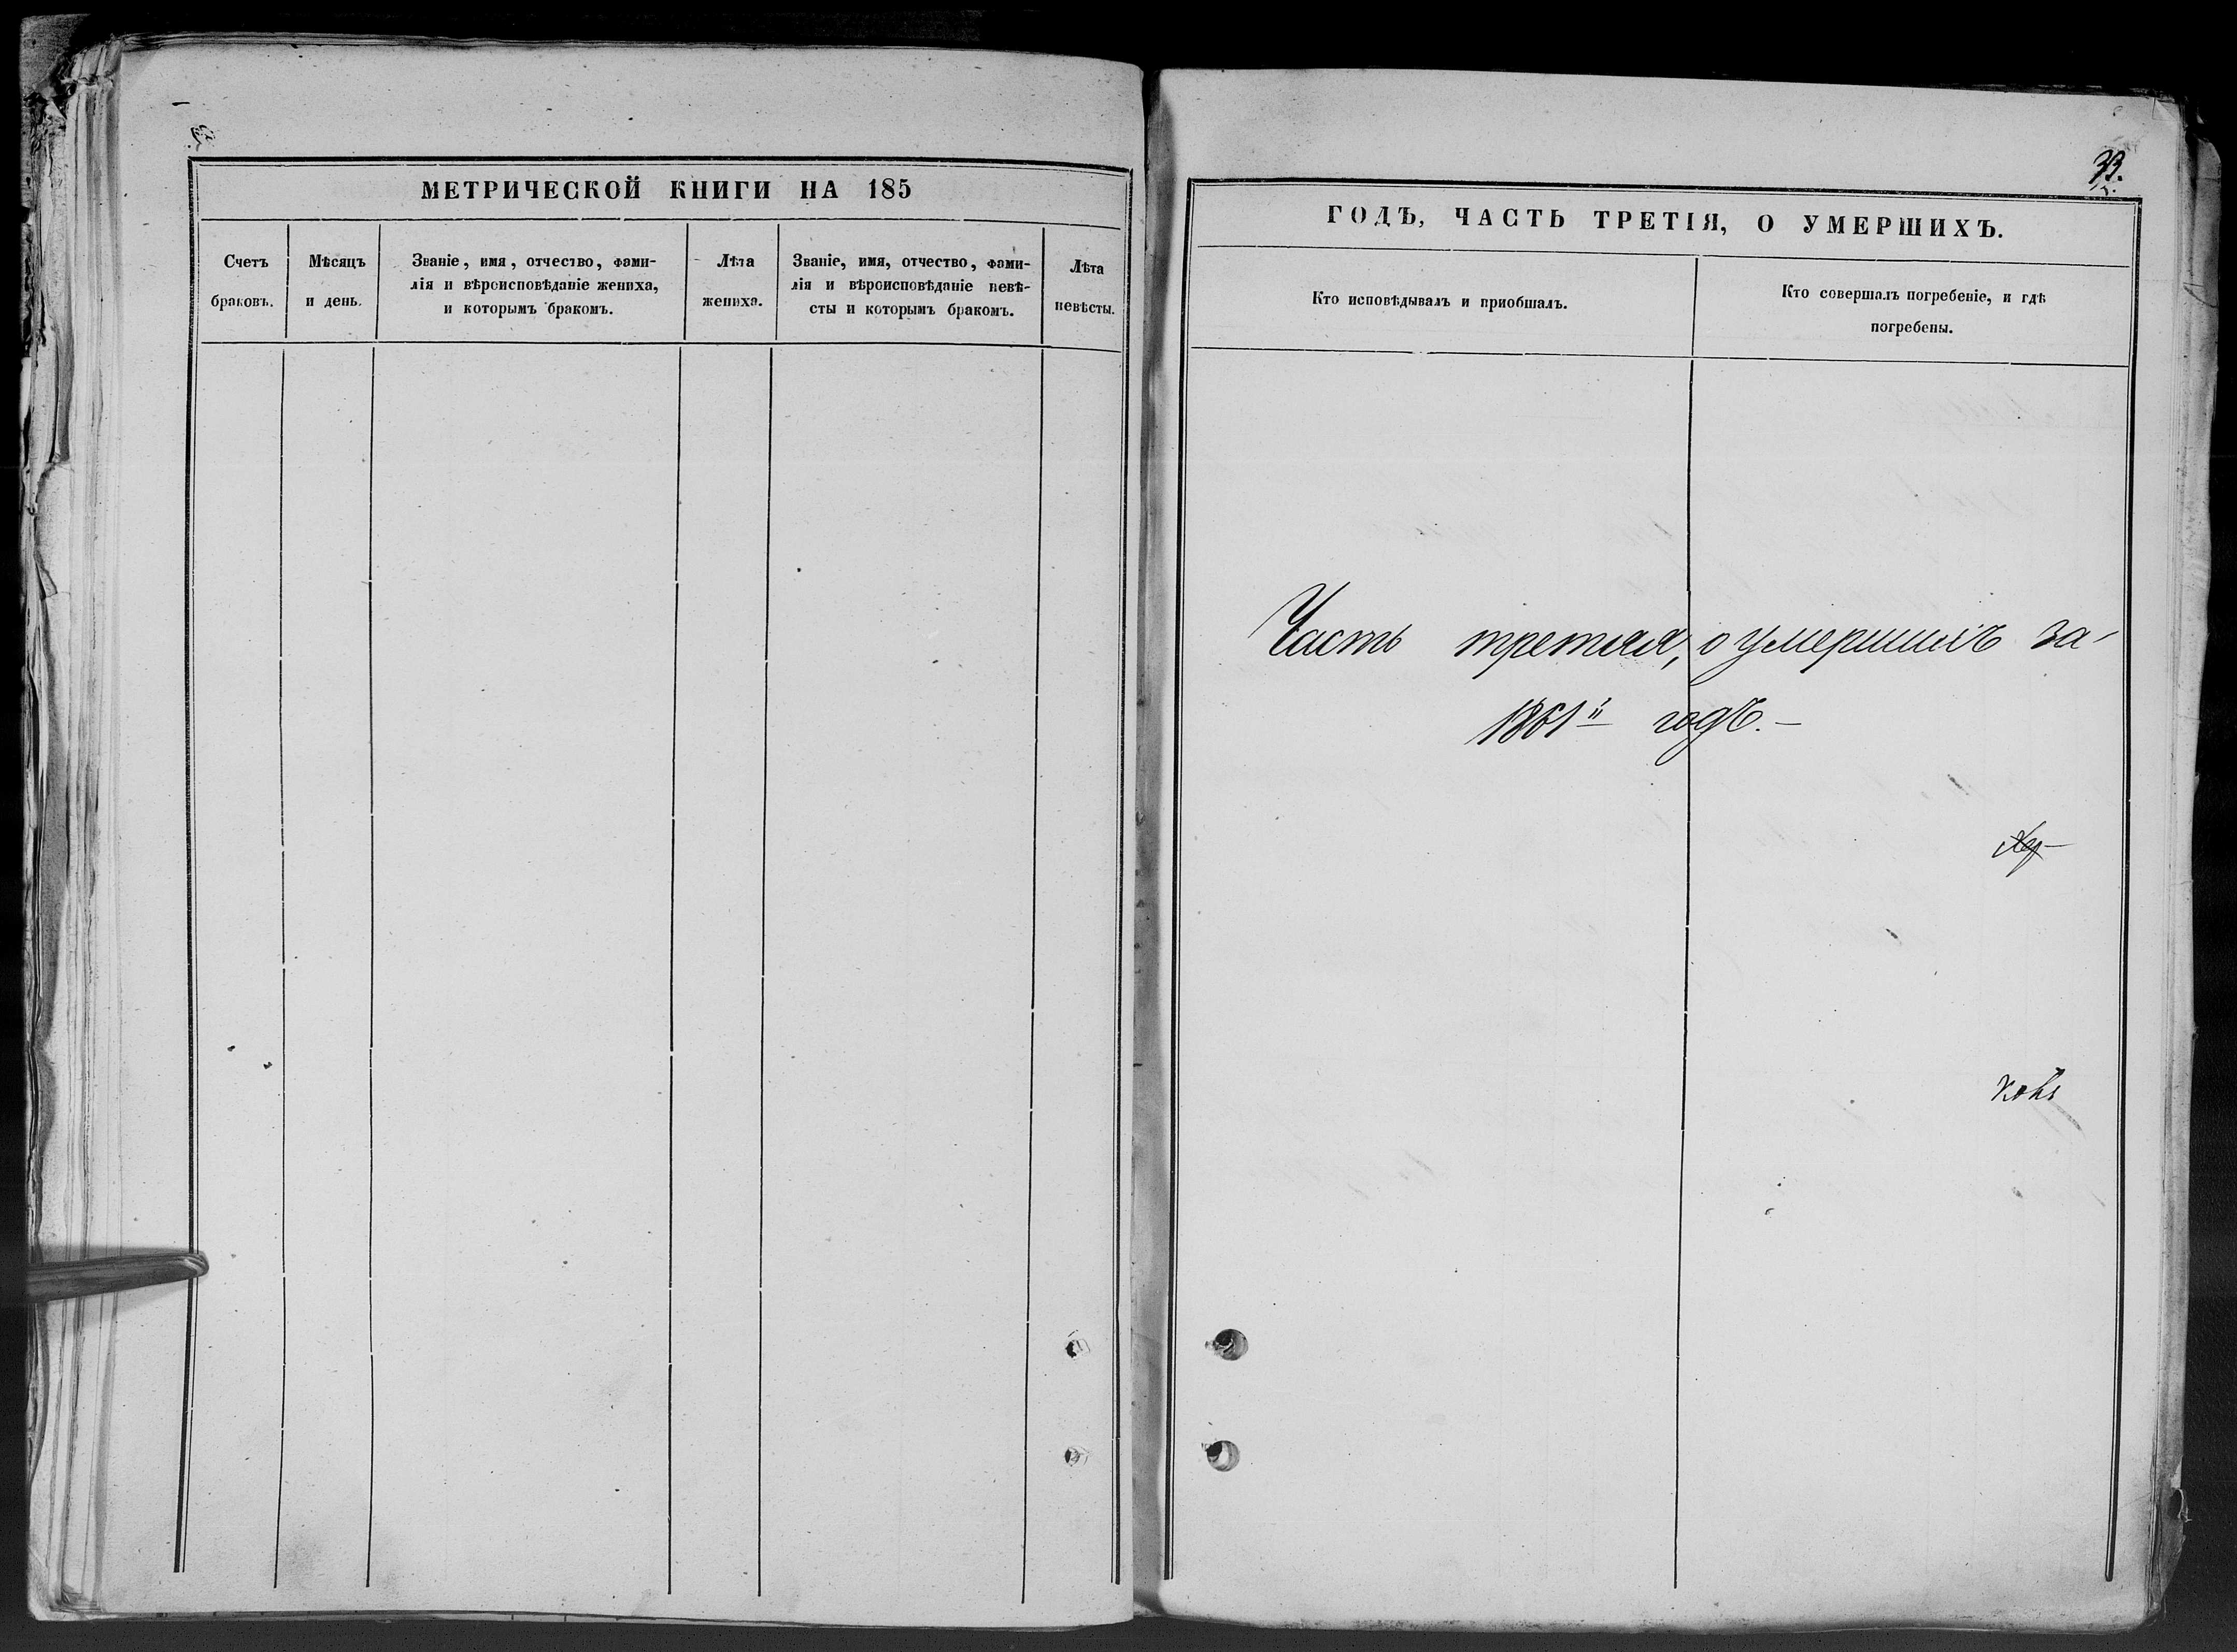 МЕТРИЧЕСКОЙ КНИГИ НА 185
Счетъ браковъ.
Мѣсяцъ и день.
Званіе, имя, отчество, фами-
лія и вѣроисповѣданіе жениха,
и которымъ бракомъ.
Лѣта жениха.
Званіе, имя, отчество, фами-
лія и вѣроисповѣданіе невѣ-
сты и которымъ бракомъ.
Лѣта невѣсты.
33.
ГОДЪ, ЧАСТЬ ТРЕТІЯ, О УМЕРШИХЪ.
Кто исповѣдывалъ и пріобщалъ.
Кто совершалъ погребеніе, и гдѣ
погребены.
Часть третія, о умершихъ за
1861й годъ.